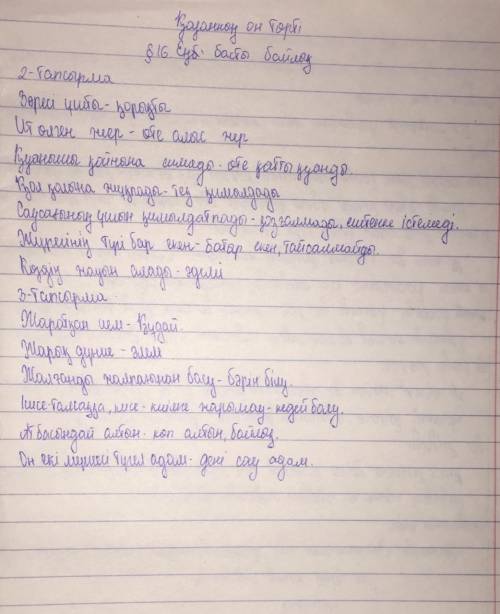 Қазанның он төрті
§16. Сұб: басты байлық
2-тапсырма
Зәресі ұшты - қорықты
Ит өлген жер - өте алыс жер
Қуанышы қойнына симады - өте қатты қуанды.
Қол қолына жұқпады - тез қимылдады
Саусағының ұшын қимылдатпады - қозғалмады, ештеңе істемеді.
Жүрегінің түгі бар екен - батыр екен, тайсалмайды.
Көздің жауын алады - әдемі
3-тапсырма
Жаратқан ием - Құдай.
Жарық дүние - әлем
Жалғанды жалпағынан басу - бәрін білу.
Ішсе тамаққа, кисе - киімге жарымау - кедей болу.
Ат басындай алтын - көп алтын, байлық.
Он екі мүшесі түгел адам - дені сау адам.